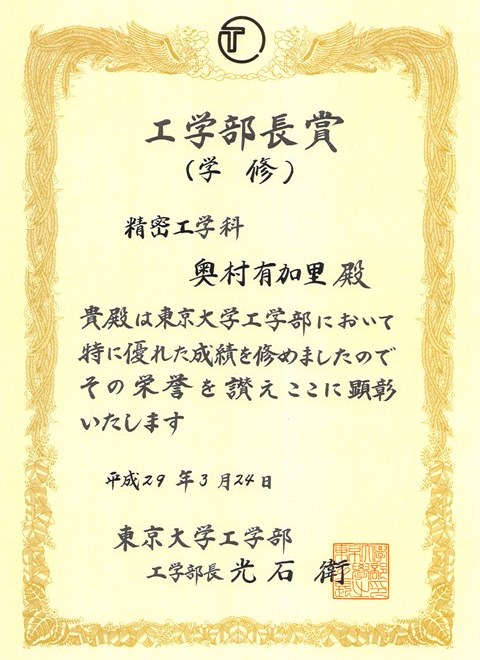 T
工学部長賞
(学 修)
精密工学科
奥村有加里 殿
貴殿は東京大学工学部において
特に優れた成績を修めましたので
その栄誉を讃えここに顕彰
いたします
平成29年3月24日
東京大学工学部
工学部長 光石 衛